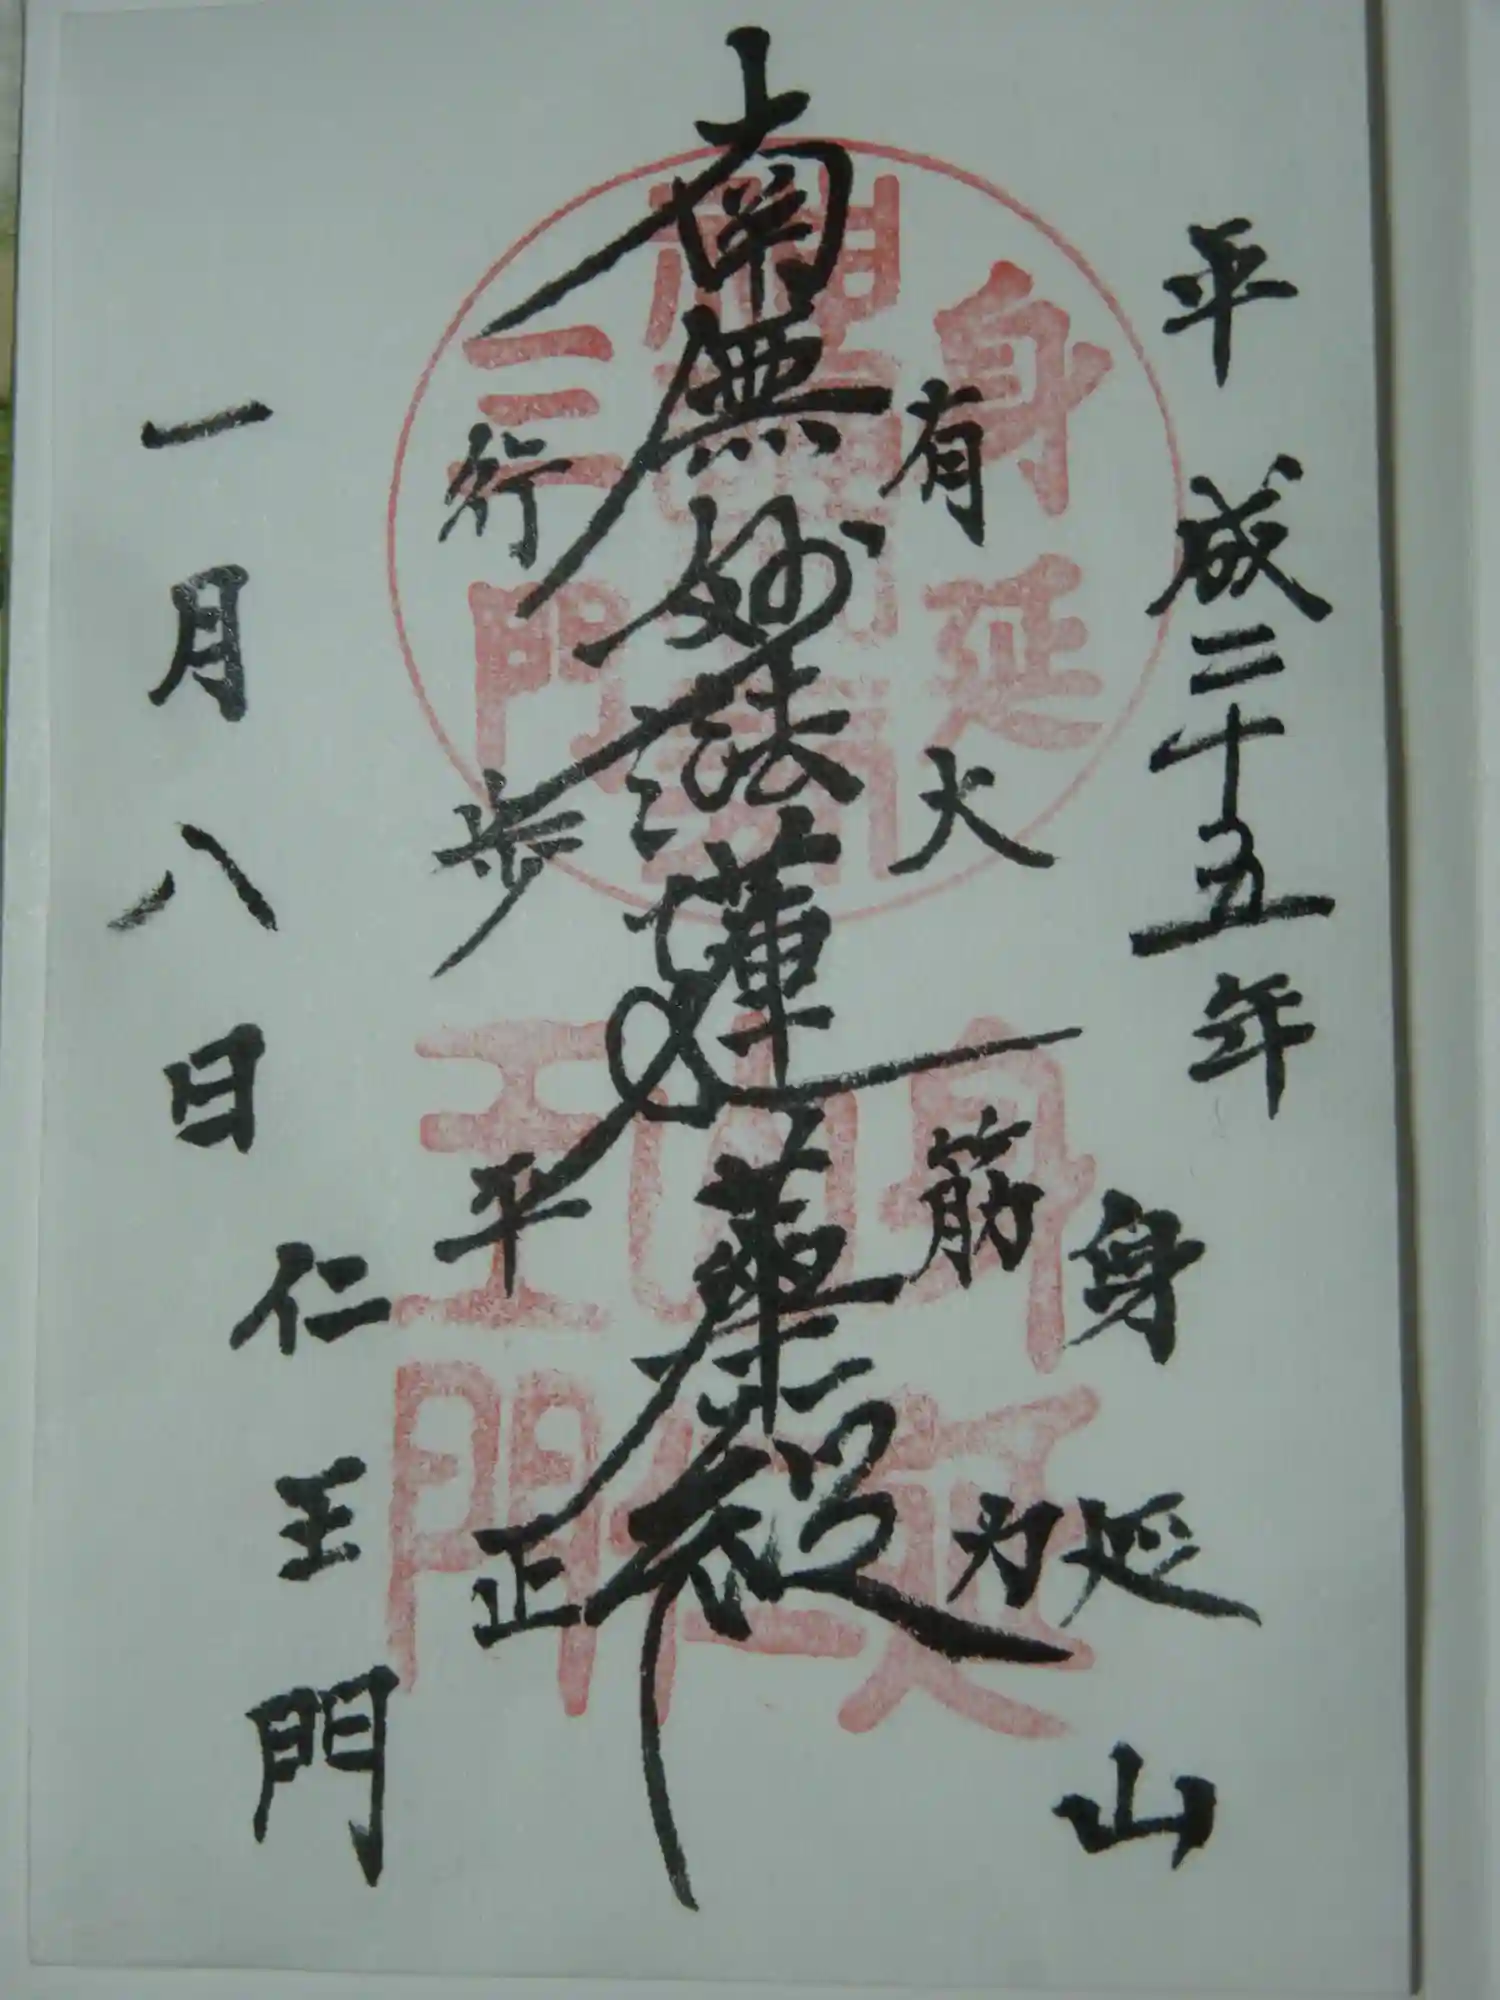 平成二十五年
身延山
有大筋力
南無妙法蓮華経
行歩平正
仁王門
一月八日
身延
三門
身延
山
仁
王門